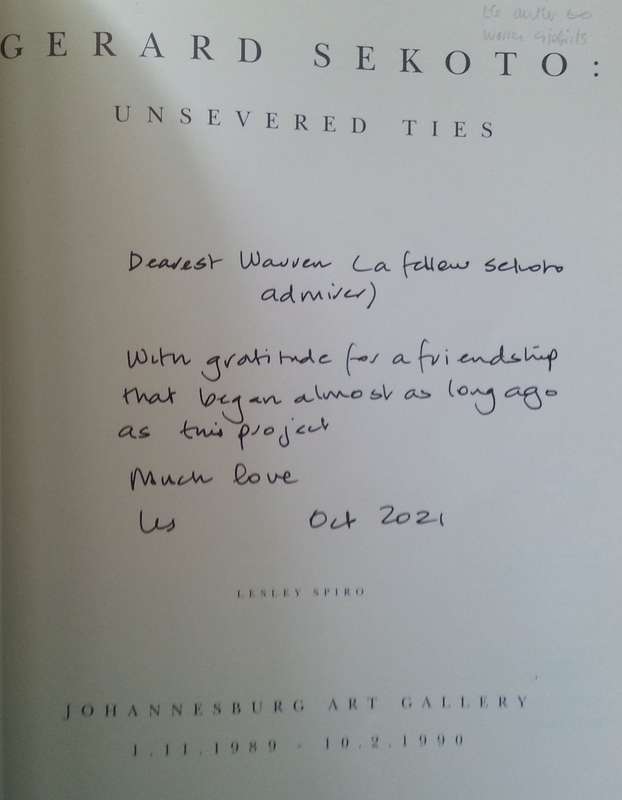 the author to
GERARD SEKOTO:
UNSEVERED TIES
Dearest Warren (a fellow Sekoto
admirer)
With gratitude for a friendship
that began almost as long ago
as this project
Much love
Les Oct 2021
LESLEY SPIRO
JOHANNESBURG ART GALLERY
1.11.1989 - 10.2.1990